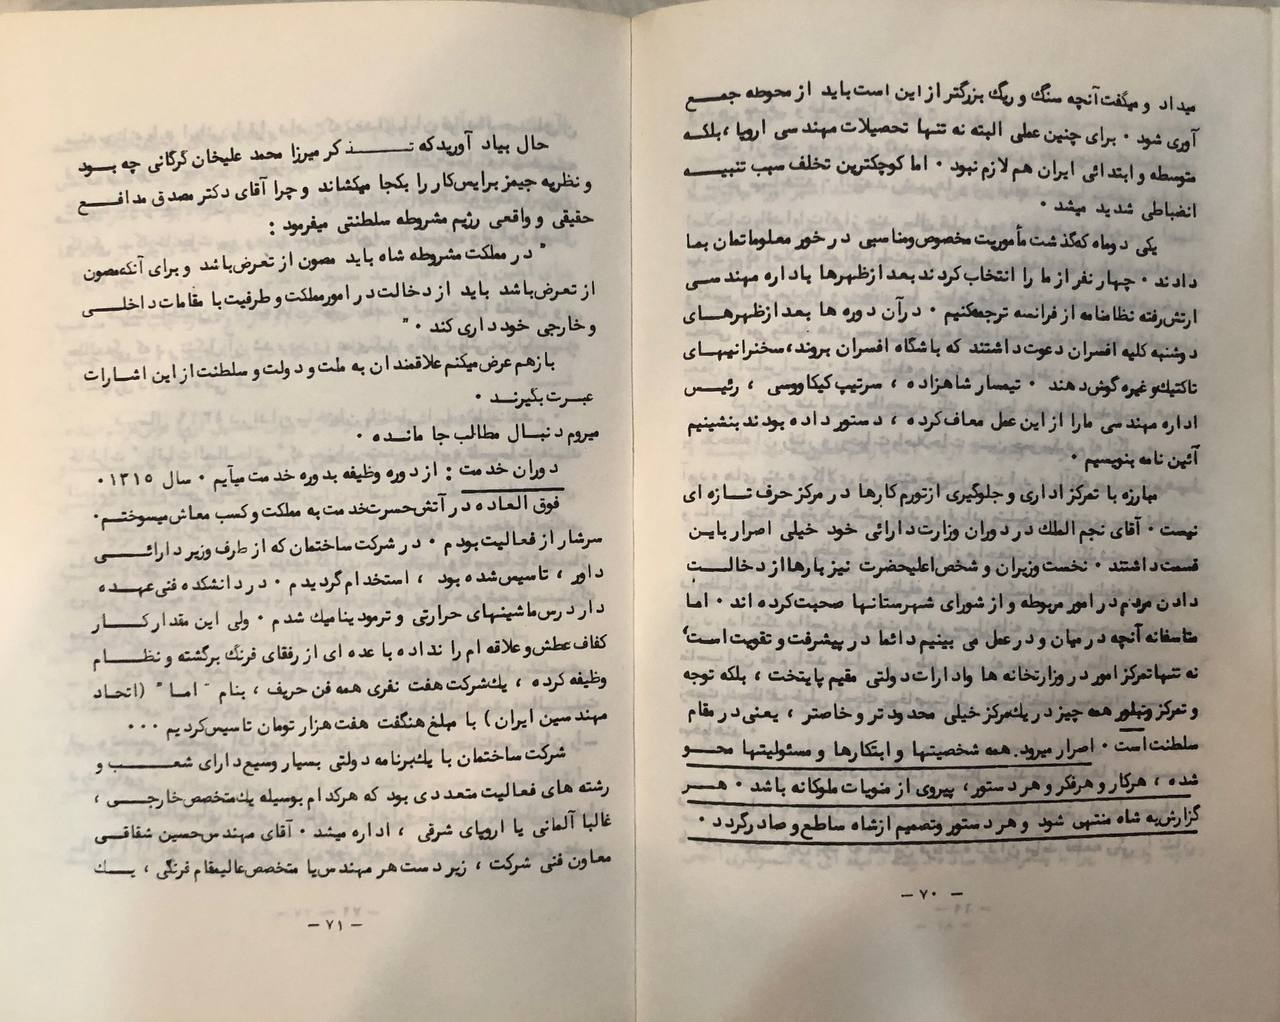 میداد و میگفت آنچه سنگ و ریگ بزرگتر از این است باید از محوطه جمع
آوری شود ۰ برای چنین عملی البته نه تنها تحصیلات مهندسی اروپا، بلکه
متوسطه و ابتدائی ایران هم لازم نبود ۰ اما کوچکترین تخلف سبب تنبیه
انضباطی شدید میشد ۰
یکی دو ماه که گذشت مأموریت مخصوص و مناسبی در خور معلوماتمان بما
دادند ۰ چهار نفر از ما را انتخاب کردند بعد از ظهرها باداره مهندسی
ارتش رفته نظامنامه از فرانسه ترجمه کنیم ۰ در آن دوره ها بعد از ظهرهای
دوشنبه کلیه افسران دعوت داشتند که باشگاه افسران بروند، سخنرانیهای
تاکتیک و غیره گوش دهند ۰ تیمسار شاهزاده ، سرتیپ کیکاووسی ، رئیس
اداره مهندسی مارا از این عمل معاف کرده ، دستور داده بودند بنشینیم
آئین نامه بنویسیم ۰
مبارزه با تمرکز اداری و جلوگیری از تورم کارها در مرکز حرف تازه ای
نیست ۰ آقای نجم الملك در دوران وزارت دارائی خود خیلی اصرار باین
قسمت داشتند ۰ نخست وزیران و شخص اعلیحضرت نیز بارها از دخالت
دادن مردم در امور مربوطه و از شورای شهرستانها صحبت کرده اند ۰ اما
متاسفانه آنچه در میان و در عمل می بینیم دائما در پیشرفت و تقویت است،
نه تنها تمرکز امور در وزارتخانه ها و ادارات دولتی مقیم پایتخت ، بلکه توجه
و تمرکز و تبلور همه چیز در یك مرکز خیلی محدودتر و خاصتر ، یعنی در مقام
سلطنت است ۰ اصرار میرود. همه شخصیتها و ابتکارها و مسئولیتها محو
شده ، هر کار و هر فکر و هر دستور، پیروی از منویات ملوکانه باشد ۰ هر
گزارش به شاه منتهی شود و هر دستور و تصمیم از شاه ساطع و صادر گردد ۰
– ۷۰ –
حال بیاد آورید که تذکر میرزا محمد علیخان گرگانی چه بود
و نظریه جیمز برایس کار را بکجا میکشاند و چرا آقای دکتر مصدق مدافع
حقیقی و واقعی رژیم مشروطه سلطنتی میفرمود :
" در مملکت مشروطه شاه باید مصون از تعرض باشد و برای آنکه مصون
از تعرض باشد باید از دخالت در امور مملکت و طرفیت با مقامات داخلی
و خارجی خودداری کند ۰ "
باز هم عرض میکنم علاقمندان به ملت و دولت و سلطنت از این اشارات
عبرت بگیرند ۰
میروم دنبال مطالب جا مانده ۰
دوران خدمت : از دوره وظیفه بدوره خدمت میآیم ۰ سال ۱۳۱۵ ۰
فوق العاده در آتش حسرت خدمت به مملکت و کسب معاش میسوختم ۰
سرشار از فعالیت بودم ۰ در شرکت ساختمان که از طرف وزیر دارائی
داور ، تاسیس شده بود ، استخدام گردیدم ۰ در دانشکده فنی عهده
دار درس ماشینهای حرارتی و ترمودینامیك شدم ۰ ولی این مقدار کار
کفاف عطش و علاقه ام را نداده با عده ای از رفقای فرنگ برگشته و نظام
وظیفه کرده ، یك شرکت هفت نفری همه فن حریف ، بنام " اما " (اتحاد
مهندسین ایران) با مبلغ هنگفت هفت هزار تومان تاسیس کردیم ۰۰۰
شرکت ساختمان با یك برنامه دولتی بسیار وسیع دارای شعب و
رشته های فعالیت متعددی بود که هر کدام بوسیله یك متخصص خارجی ،
غالبا آلمانی یا اروپای شرقی ، اداره میشد ۰ آقای مهندس حسین شقاقی
معاون فنی شرکت ، زیر دست هر مهندس یا متخصص عالیمقام فرنگی ، یك
– ۷۱ –